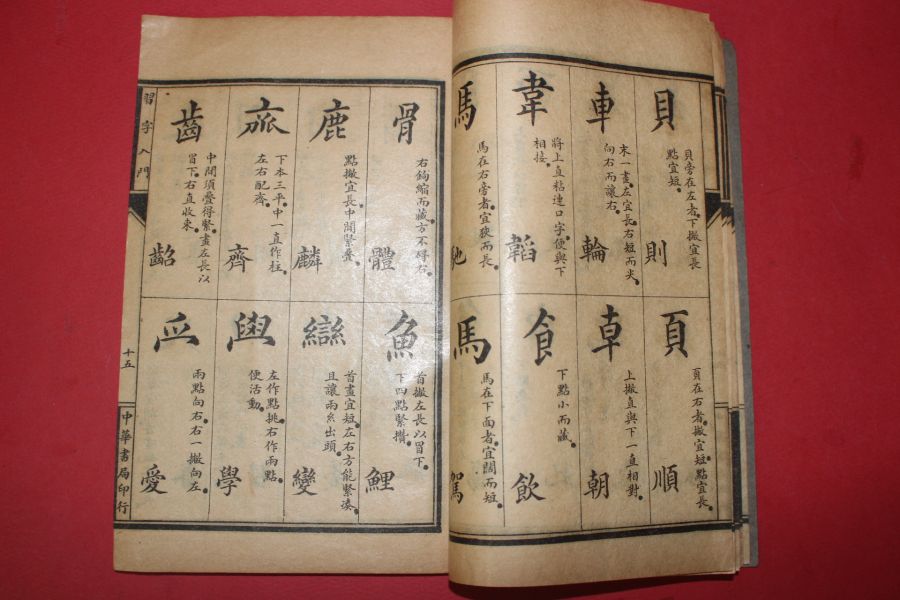 貝
貝旁在左者。下撇宜長
點宜短。
則
車
末一畫。左宜長。右短而尖。
向右而讓右。
輪
韋
將上直粘連口字。便與下
相接。
韜
馬
馬在右旁者。宜狹而長。
馳
頁
頁在右者。撇宜短。點宜長。
順
卓
上撇直與下一直相對。
朝
食
下點小而藏。
飲
馬
馬在下面者。宜闊而短。
駕
骨
右鈎縮而藏。方不碍右。
體
鹿
點撇宜長。中間緊疊。
麟
下本三平。中一直作柱。
左右配齊。
齊
齒
中間須疊得緊。畫左長以
冒下。右直收來。
齠
魚
首撇左長以冒下。
下四點緊攢。
鯉
䜌
首畫宜短。左右方能緊湊。
且讓兩糸出頭。
變
左作點挑。右作兩點。
便活動。
學
兩點向右。右一撇向左。
愛
習字入門
十五
中華書局印行